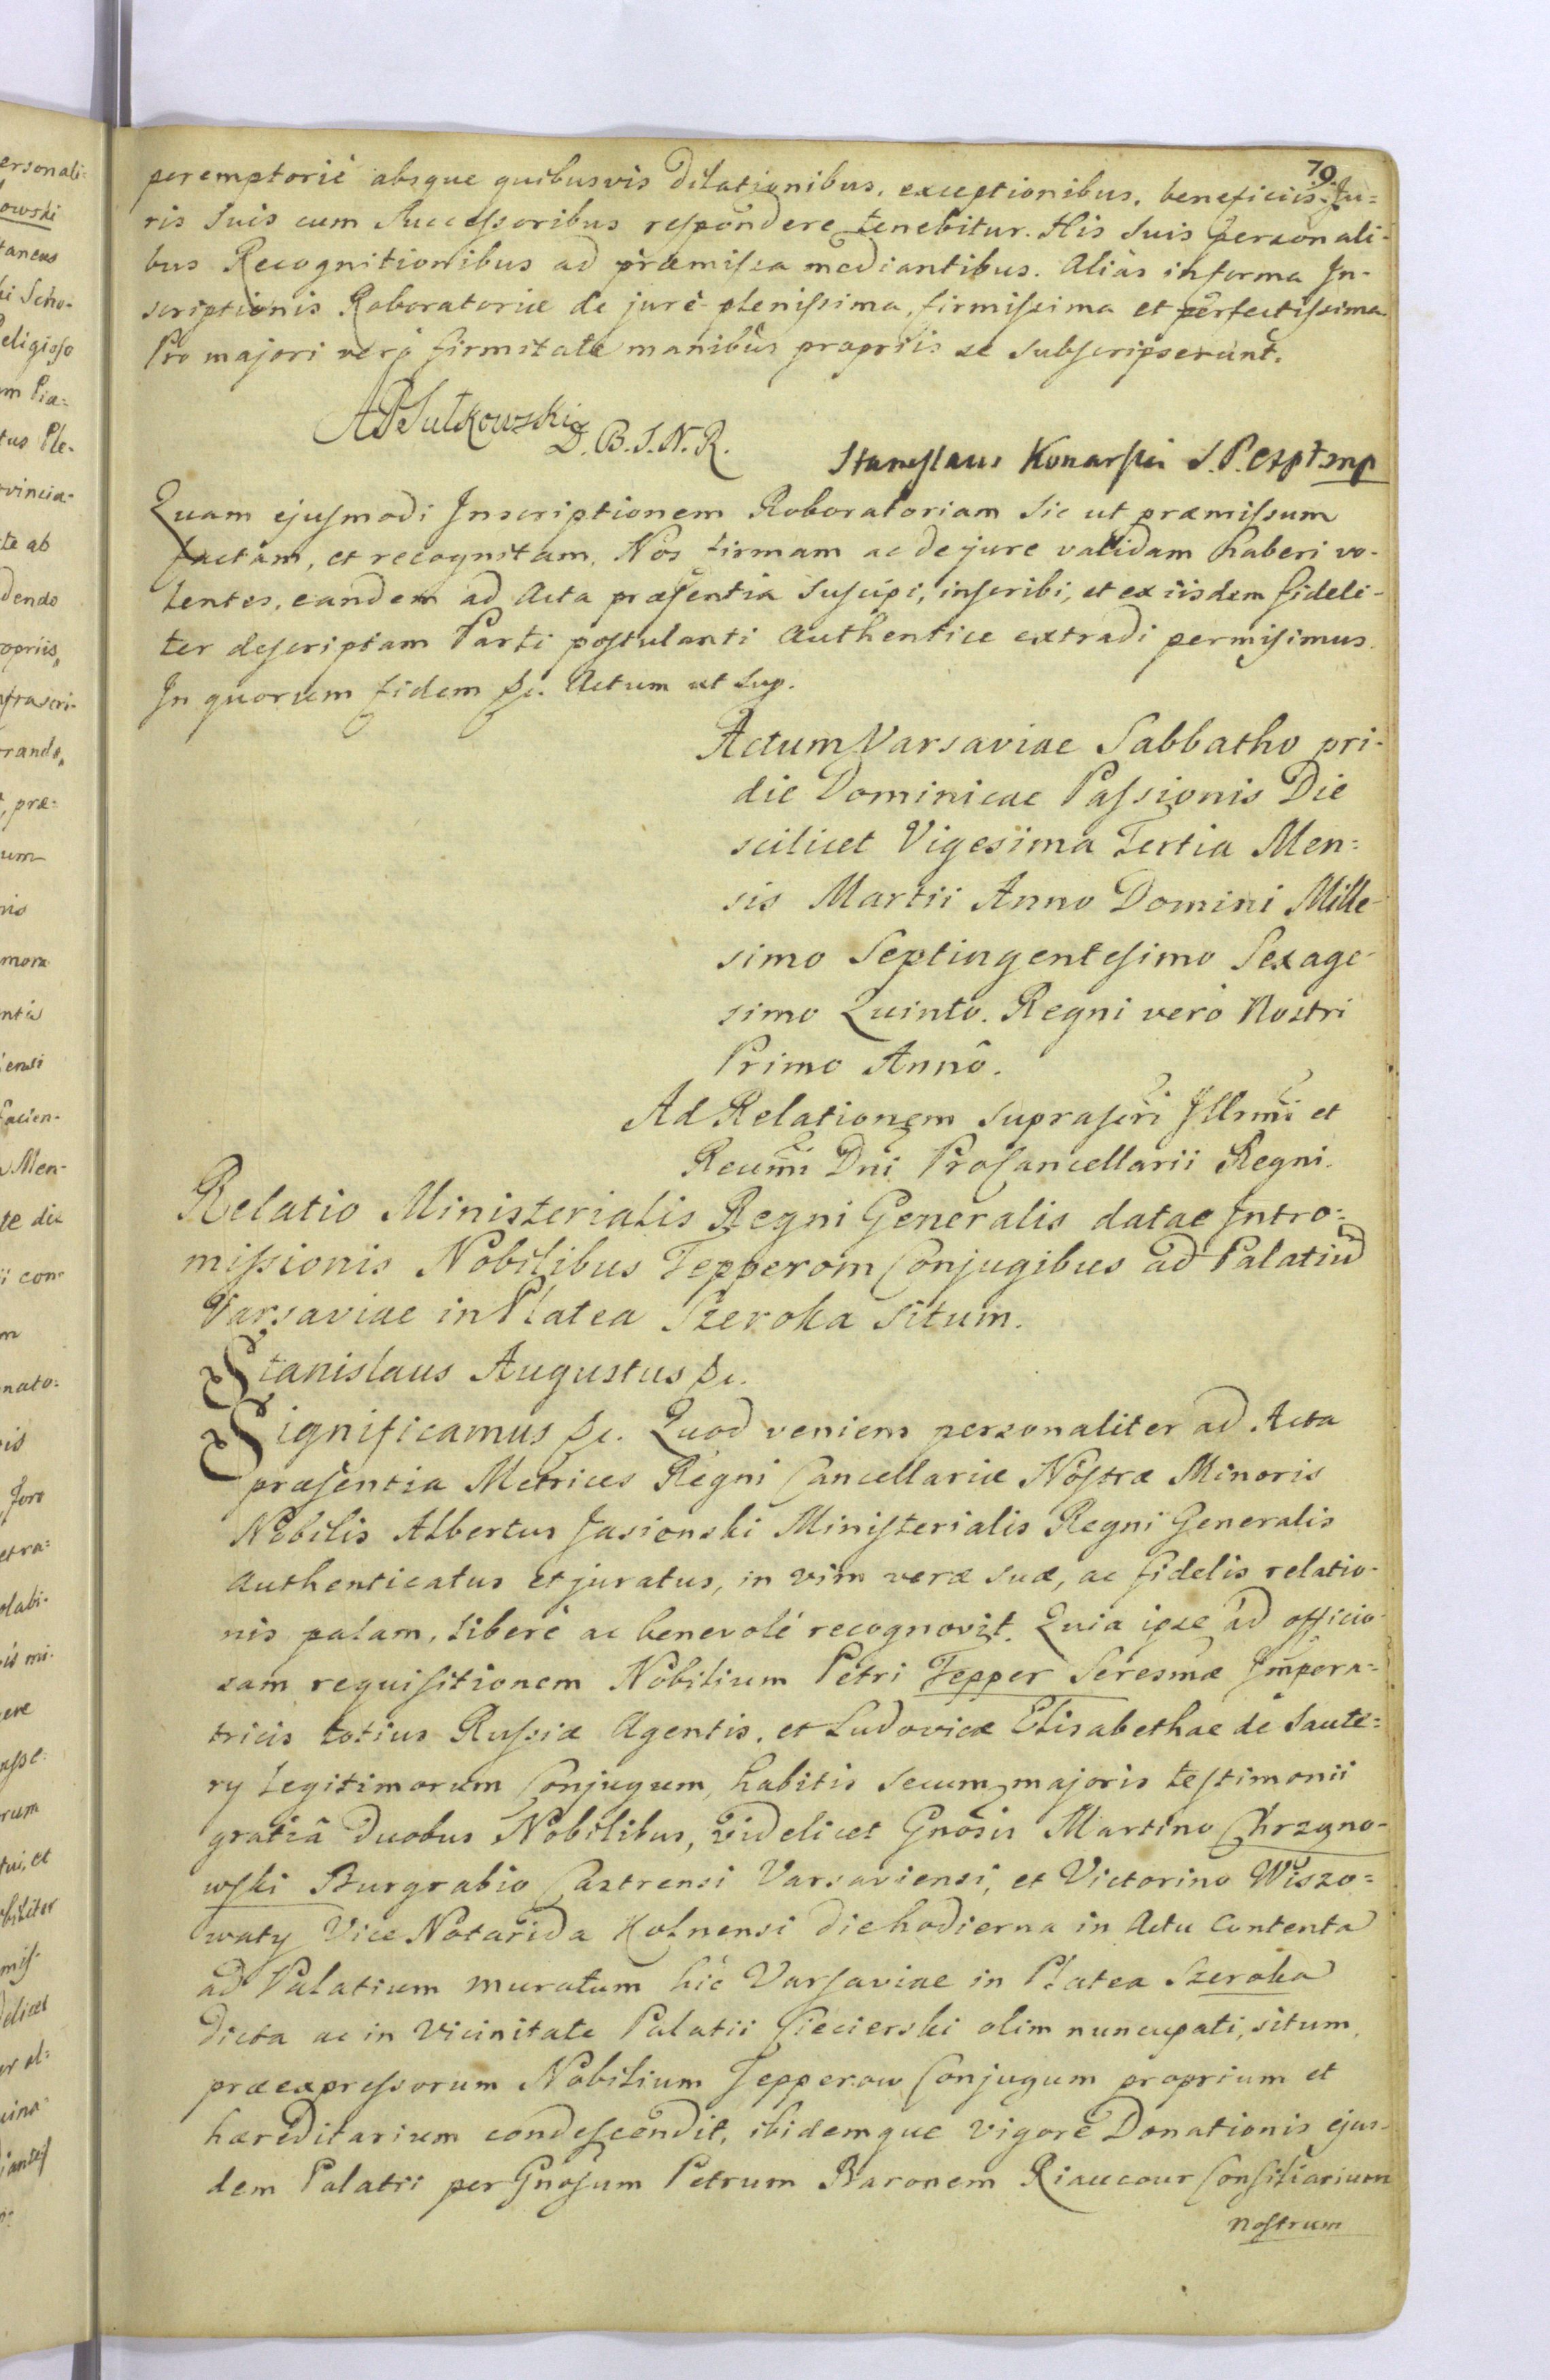 79.
peremptorié absque quibusvis Dilationibus, exceptionibus, beneficiis Ju=
ris Suis cum Successoribus respondere tenebitur. His Suis personali-
bus Recognitionibus ad præmissa mediantibus. Alias in forma In-
scriptionis Roboratoriæ de jurè plenissima, firmissima et perfectissima
Pro majori verò firmitate manibùs propriis se Subscripserunt.
APSutkowski D. B. S. N. R.
Stanislaus Konarski S. P.
Quam ejusmodi Inscriptionem Roboratoriam Sic ut præmissum
factam, et recognitam, Nos firmam ac de jure validam haberi vo-
lentes, eandem ad Acta præsentia Suscipi, inscribi, et ex iisdem fideli-
ter descriptam Parti postulanti Authentice extradi permisimus.
In quorum fidem &c. Actum ut Sup.
Actum Varsaviae Sabbatho pri-
die Dominicae Passionis Die
scilicet Vigesima Tertia Men=
sis Martii Anno Domini Mille-
simo Septingentesimo Sexage-
simo Quinto. Regni verò Nostri
Primo Annô.
Ad Relationem Suprascri Illrmi et
Reumi Dni ProCancellarii Regni.
Relatio Ministerialis Regni Generalis datae Intro=
missionis Nobilibus Tepperom Conjugibus ad Palatiu
Varsaviae in Platea Szeroka Situm.
Stanislaus Augustus &c.
Significamus &c. Quod veniens personaliter ad Acta
præsentia Metrices Regni Cancellariæ Nostræ Minoris
Nobilis Albertus Jasionski Ministerialis Regni Generalis
Authenticatus et juratus, in vim veræ suæ, ac fidelis relatio-
nis palam, liberè ac benevolé recognovit. Quia ipse ad officio-
sam requisitionem Nobilium Petri Tepper Seresmæ Impera=
tricis totius Russiæ Agentis, et Ludovicæ Elisabethae de Saute=
ry Legitimorum Conjugum, habitis Secum majoris testimonii
gratiâ Duobus Nobilibus, videlicet Gnosis Martino Chrzano-
wski Burgrabio Castrensi Varsaviensi, et Victorino Wiszo=
waty Vice Notarida Kolnensi die hodierna in Actu Contenta
ad Palatium muratum hic Varsaviae in Platea Szeroka
Dicta ac in Vicinitate Palatii Ciecierski olim nuncupati, situm,
præexpressorum Nobilium Tepperow Conjugum proprium et
hæreditarium condescendit, ibidemque vigore Donationis ejus-
dem Palatii per Gnosum Petrum Baronem Riaucour Consiliarium
nostrum